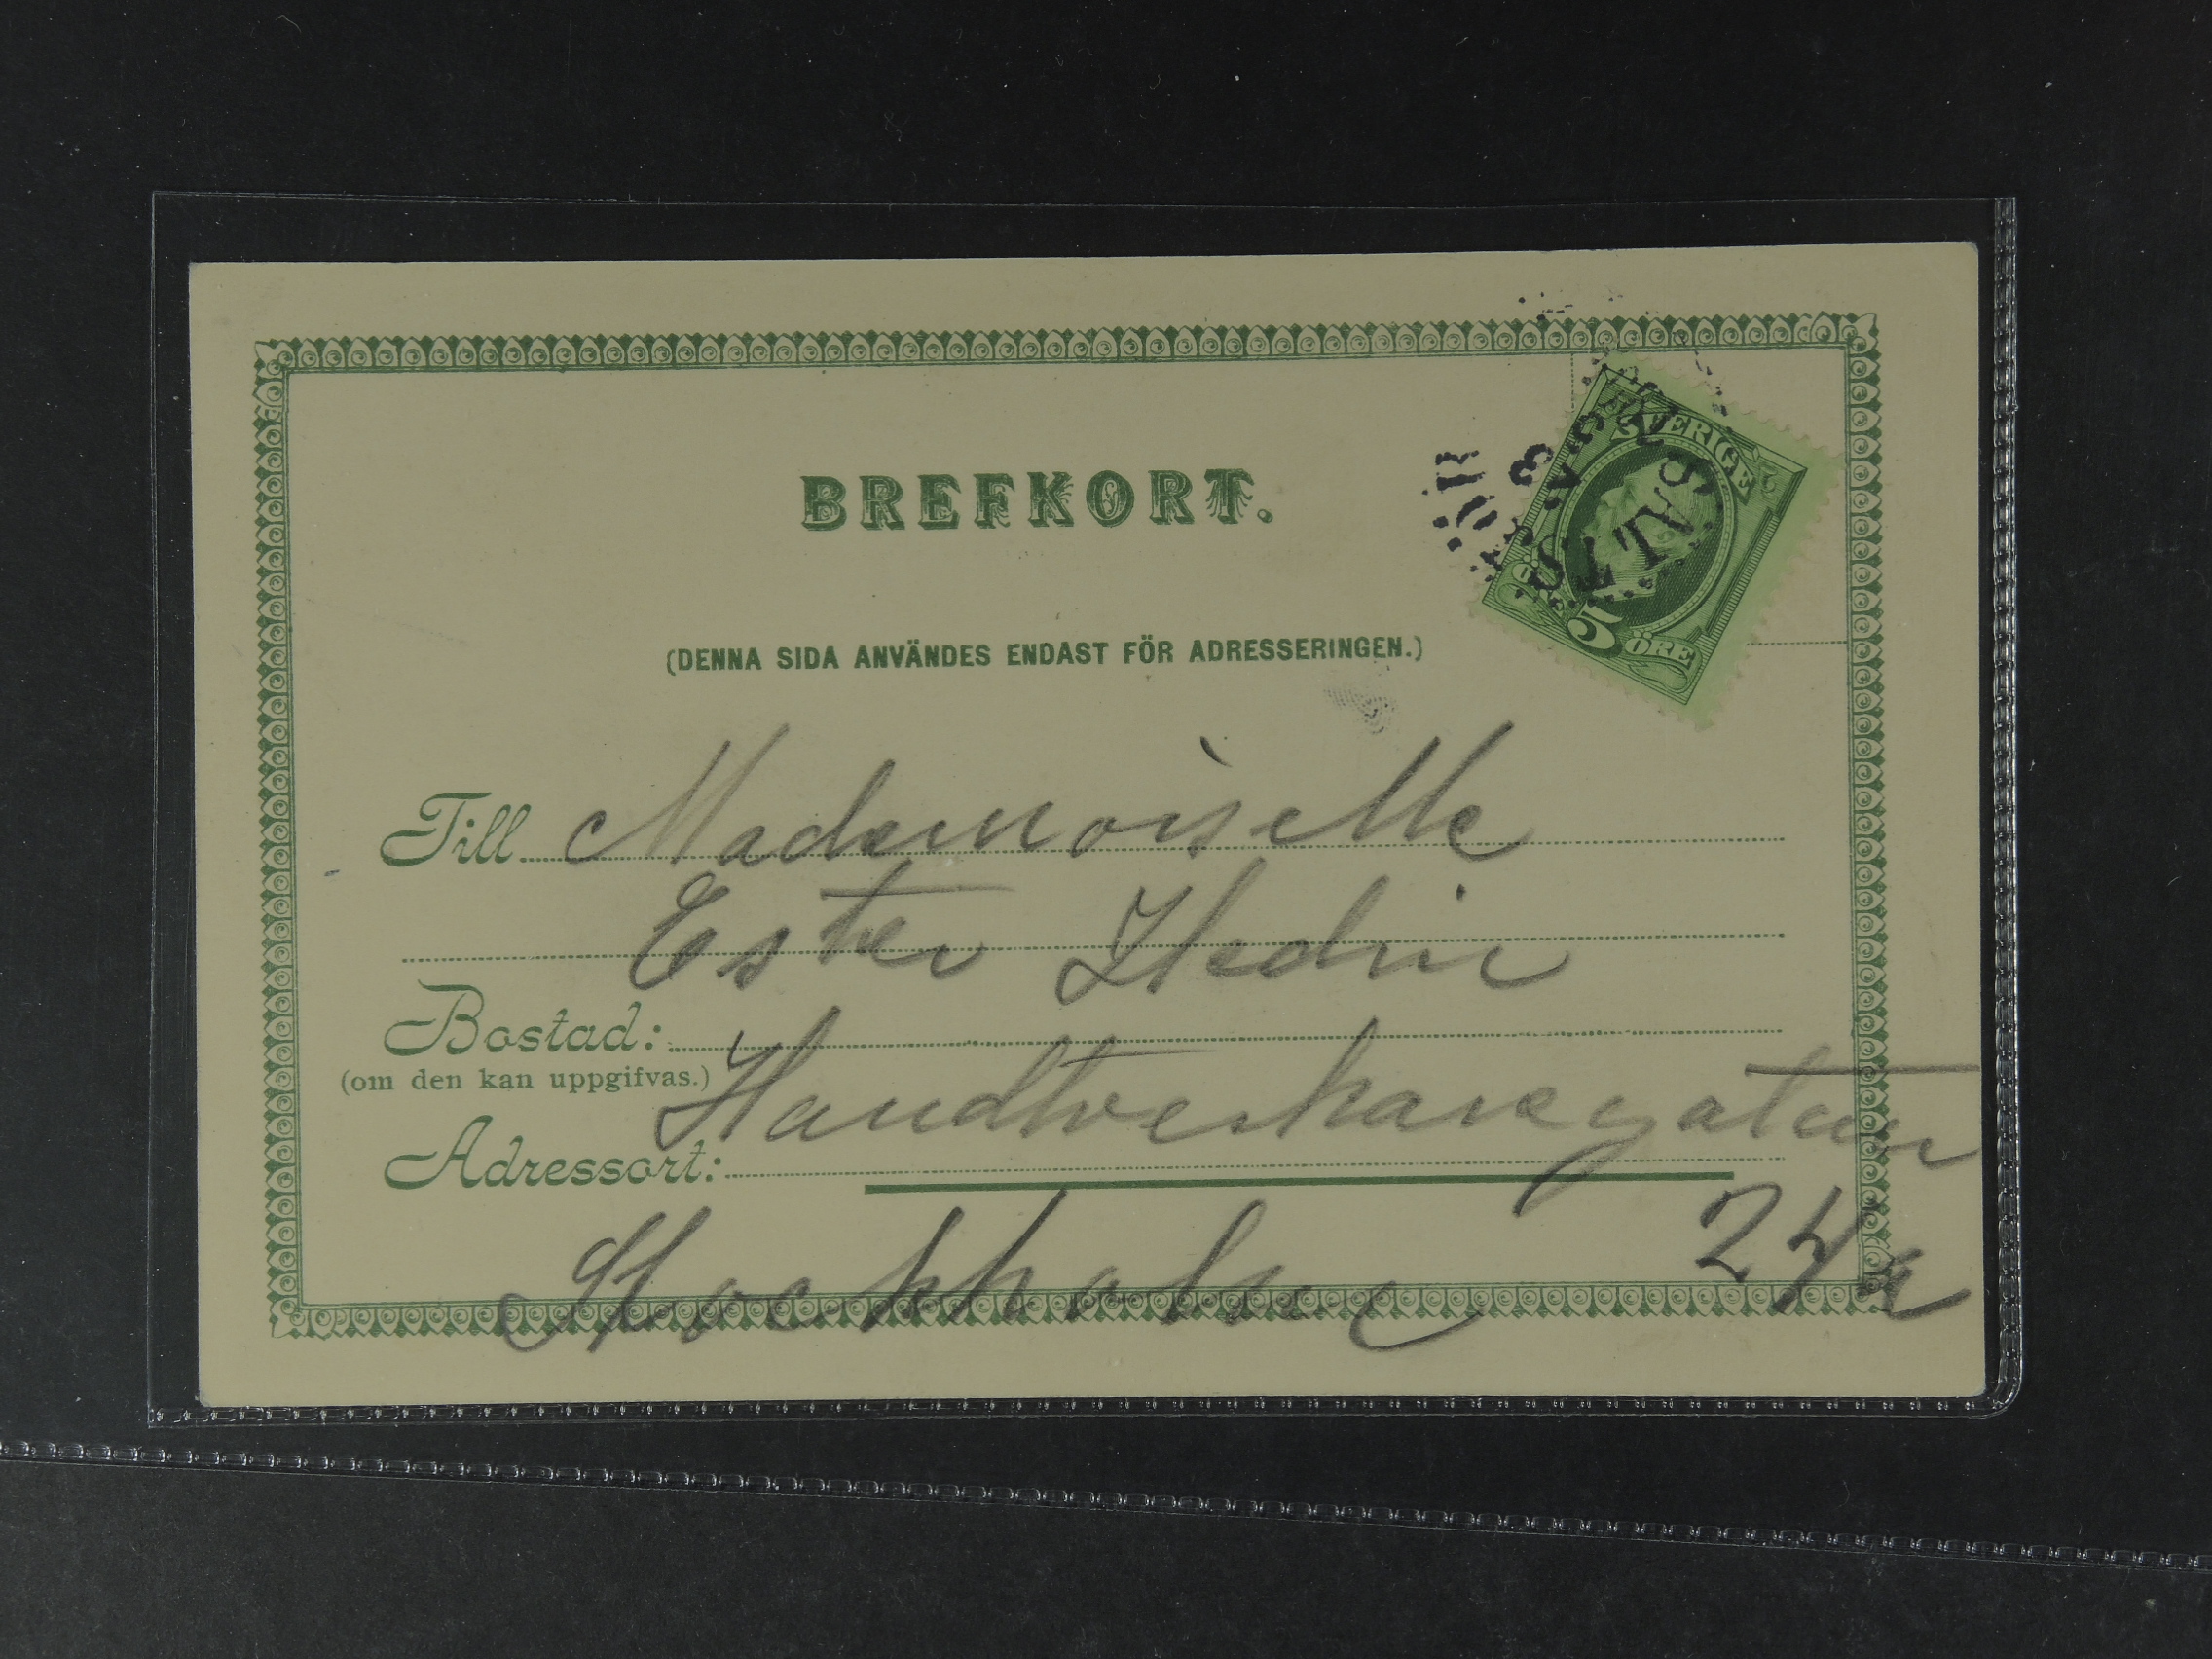 BREFKORT.
SVERIGE
SALTS
5 ÖRE
(DENNA SIDA ANVÄNDES ENDAST FÖR ADRESSERINGEN.)
Till Mademoiselle
Ester Hedin
Bostad:
(om den kan uppgifvas.)
Handtverkaregatan
Adressort:
24a
Stockholm